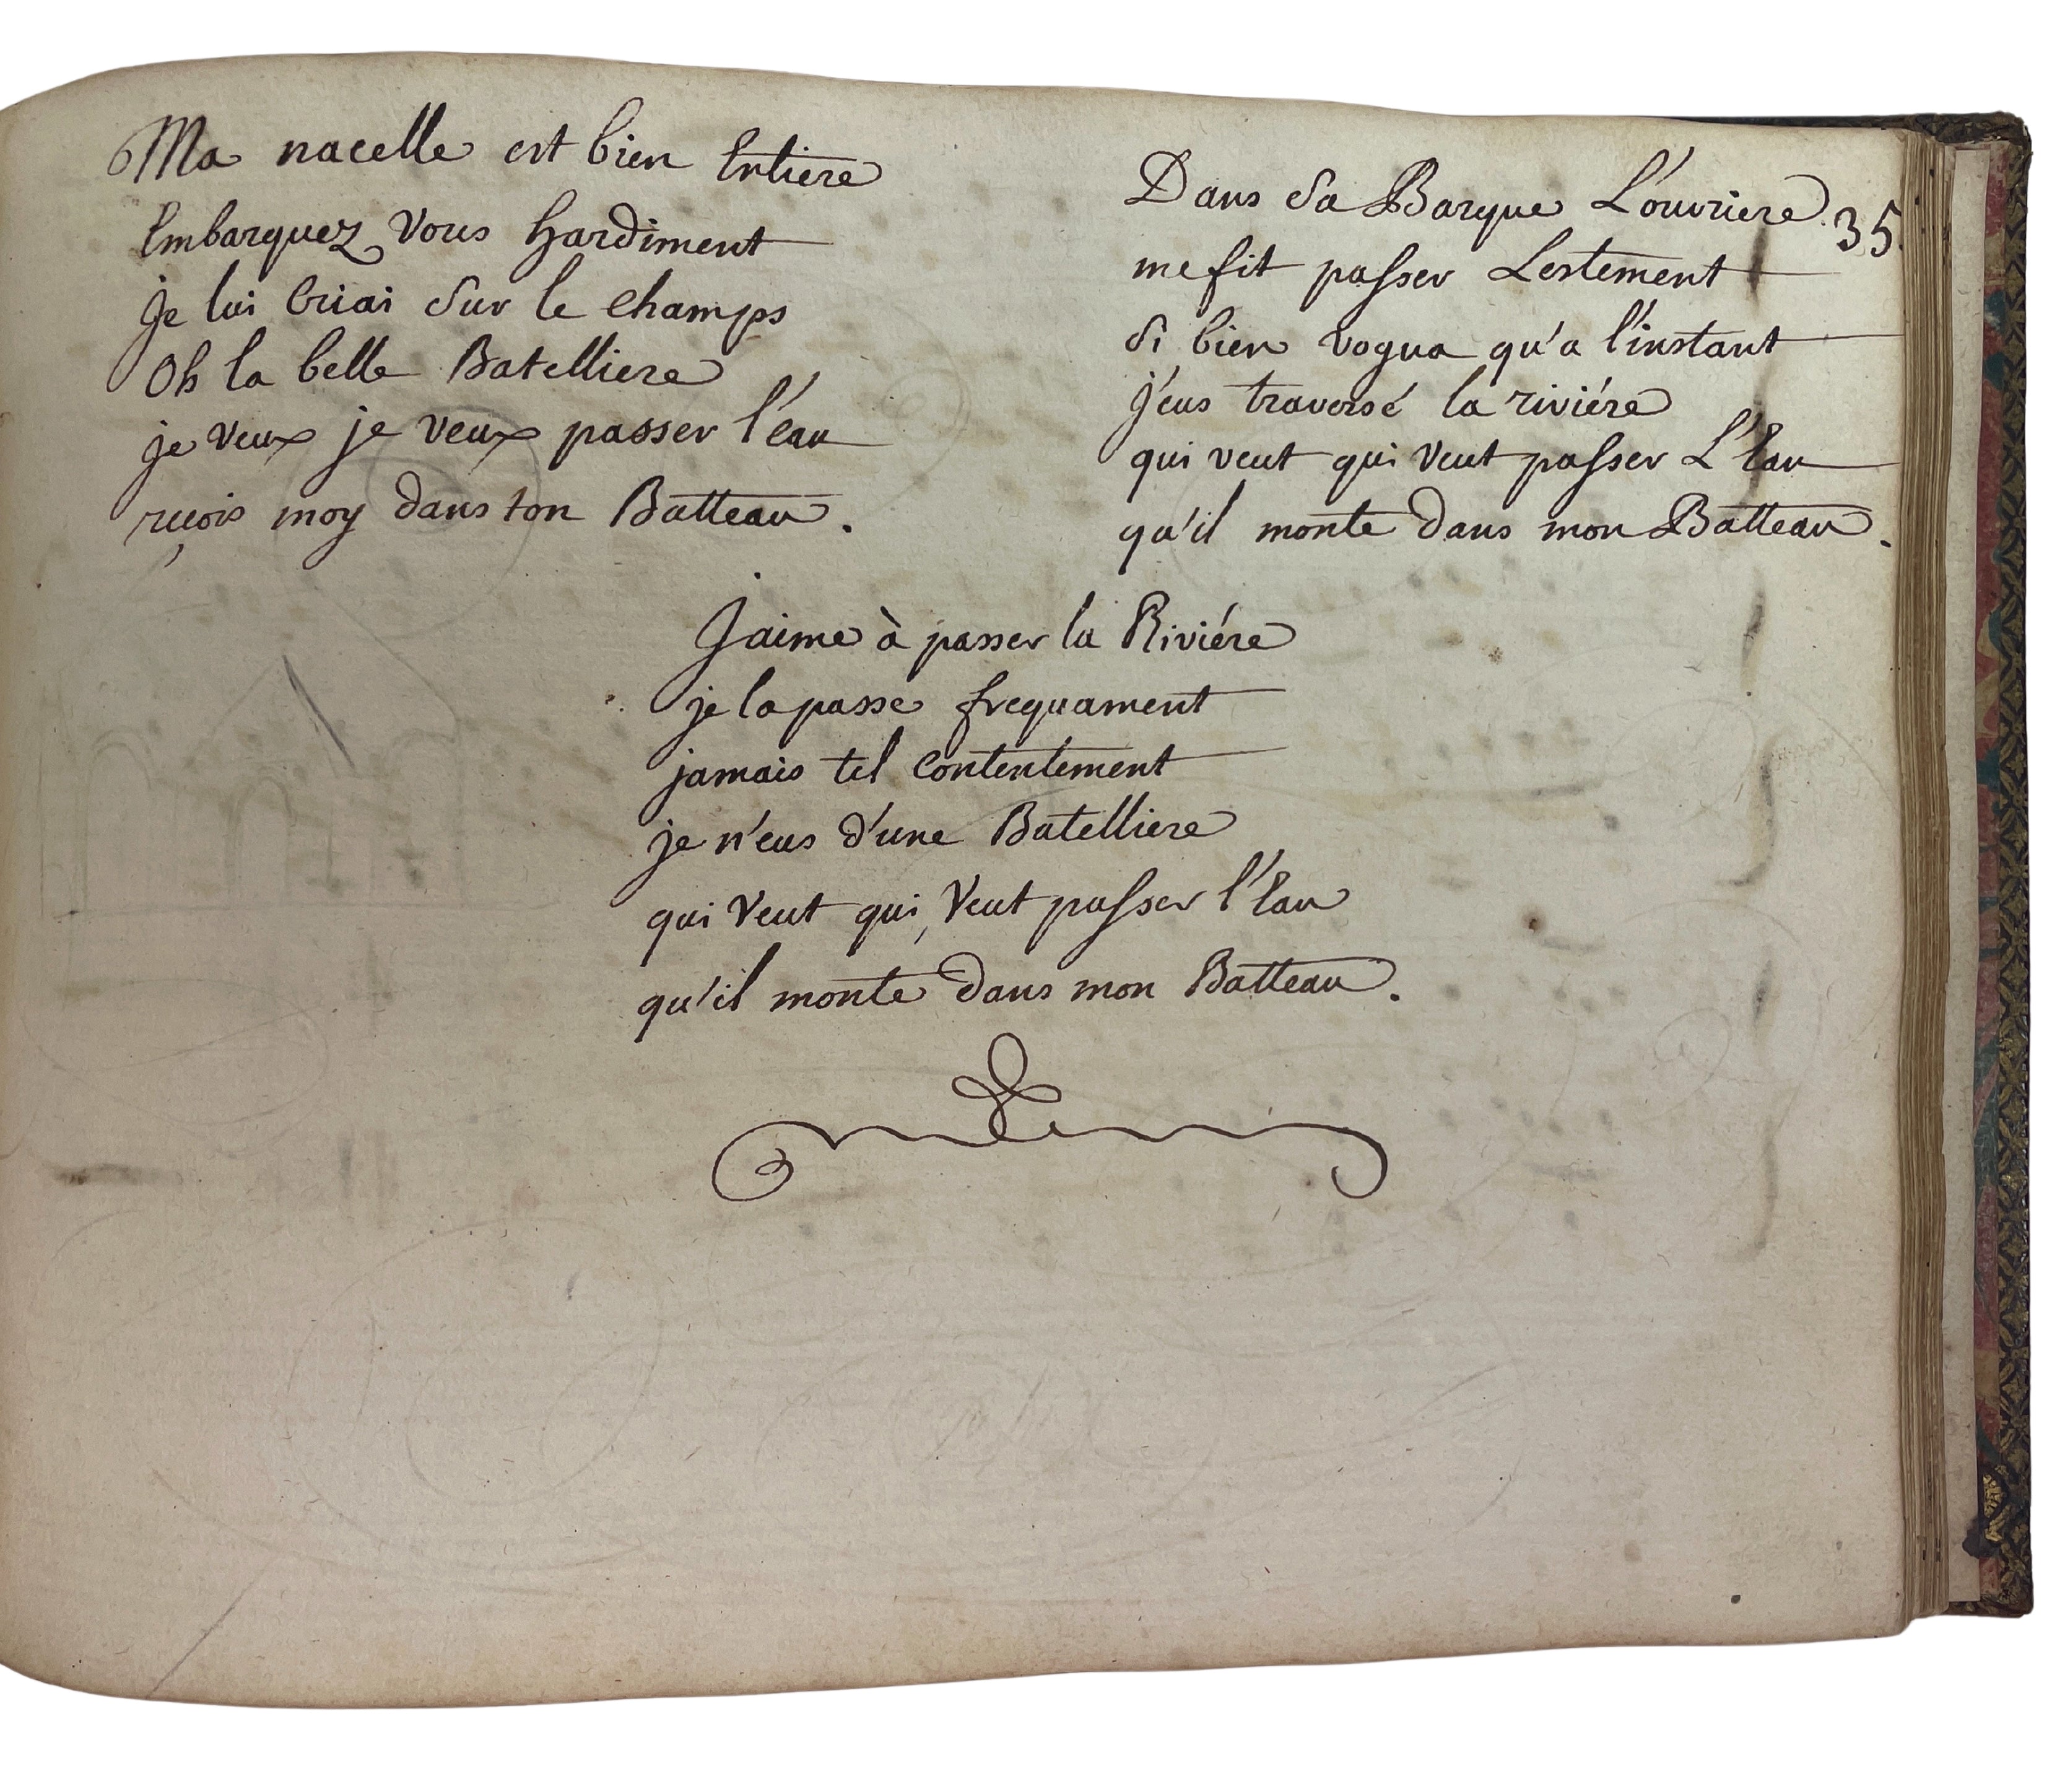 Ma nacelle est bien Entiere
Embarquez Vous hardiment
je lui Criai Sur le Champs
Oh la belle Batelliere
je veux je veux passer l'éau
reçois moy dans ton Batteau.
35.
Dans Sa Barque L'ouvriere
me fit passer Lestement
Si bien vogua qu'a l'instant
j'eus traversé la riviére
qui veut qui veut passer L'Eau
qu'il monte dans mon Batteau.
J'aime à passer la Riviére
je la passe frequament
jamais tel Contentement
je n'eus d'une Batelliere
qui Veut qui, Veut passer l'Eau
qu'il monte dans mon Batteau.